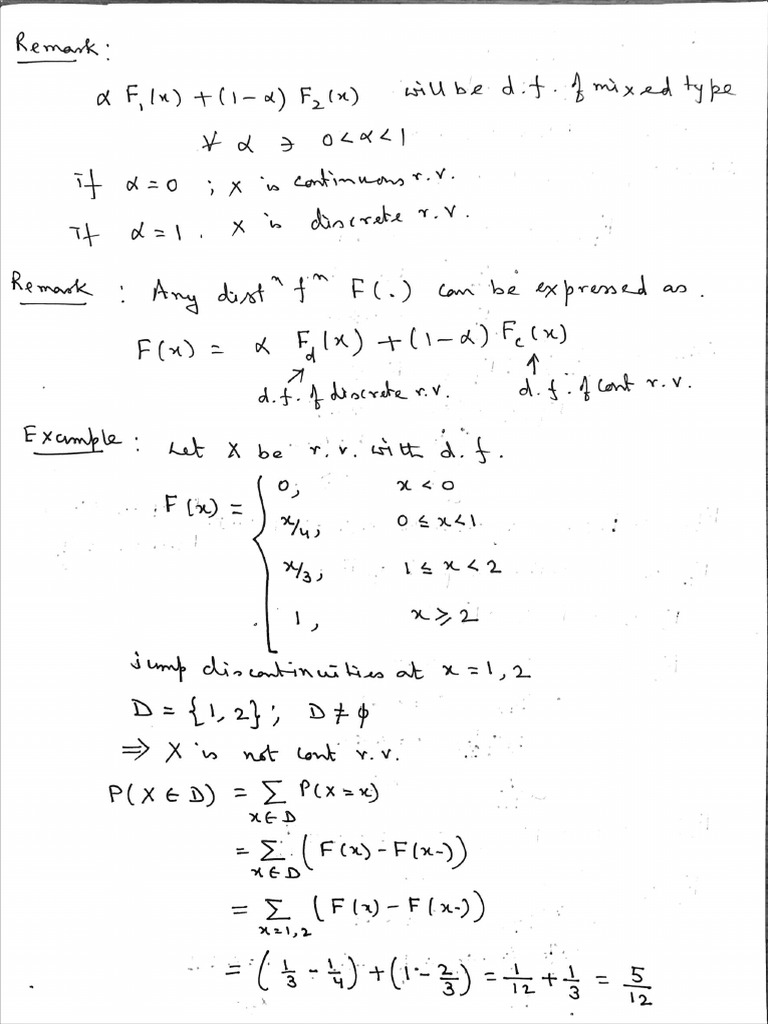 Remark:
α F₁(x) + (1-α) F₂(x) will be d.f. of mixed type
∀ α ∋ 0<α<1
if α=0 ; X is continuous r.v.
if α=1. X is discrete r.v.
Remark : Any distⁿ fⁿ F(.) can be expressed as.
F(x) = α F_d(x) + (1-α) F_c(x)
d.f. of discrete r.v. d.f. of cont r.v.
Example : Let X be r.v. with d.f.
F(x) = { 0, x < 0
x/4, 0 ≤ x < 1
x/3, 1 ≤ x < 2
1, x ≥ 2
jump discontinuities at x = 1, 2
D = {1, 2}; D ≠ ϕ
⇒ X is not cont r.v.
P(X ∈ D) = Σ_{x∈D} P(X = x)
= Σ_{x∈D} (F(x) - F(x-))
= Σ_{x=1,2} (F(x) - F(x-))
= (1/3 - 1/4) + (1 - 2/3) = 1/12 + 1/3 = 5/12